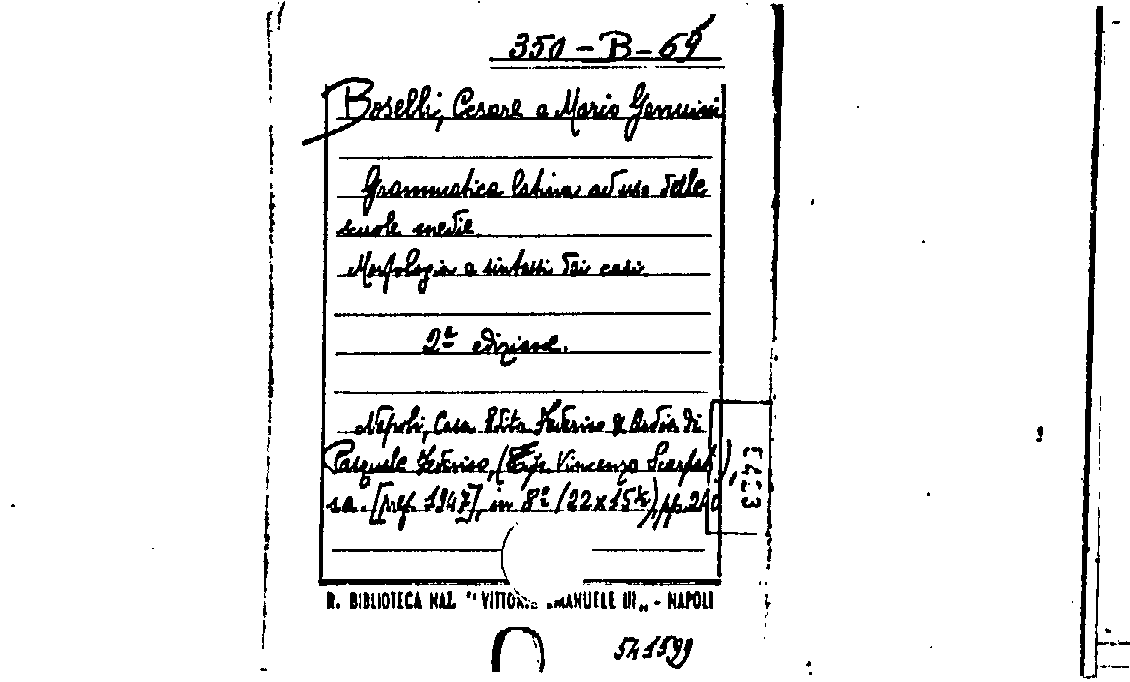 350-B-69
Boselli, Cesare e Mario Genuini
Grammatica latina ad uso delle
scuole medie.
Morfologia e sintassi dei casi.
2ª edizione.
Napoli, Casa Edita Federico & Ardia di
Pasquale Federico, (Tip. Vincenzo Scarpati),
s.a. [pref. 1947], in 8º (22x15½), pp. 240
R. BIBLIOTECA NAZ. "VITTORIO EMANUELE III„ - NAPOLI
541599